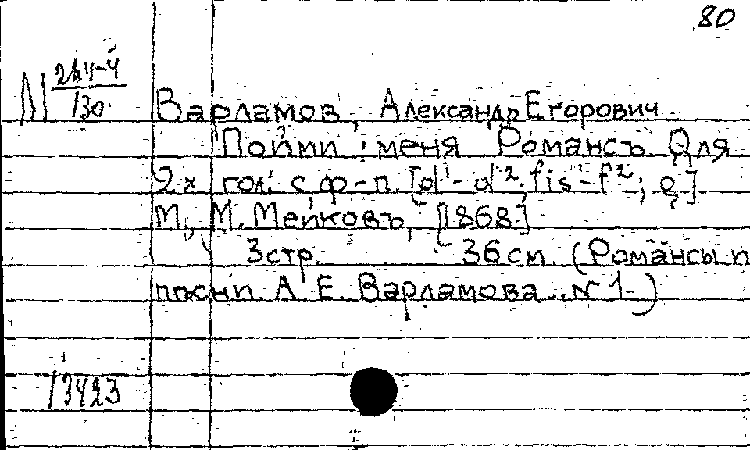 80
М 244-4/130
Варламов, Александр Егорович
Пойми меня Романсъ Для
2х гол. с ф-п. [d¹-d², fis-f²; e]
М., М. Мейковъ, [1868]
3 стр. 36 см (Романсы и
пѣсни А. Е. Варламова .. № 1.)
13423